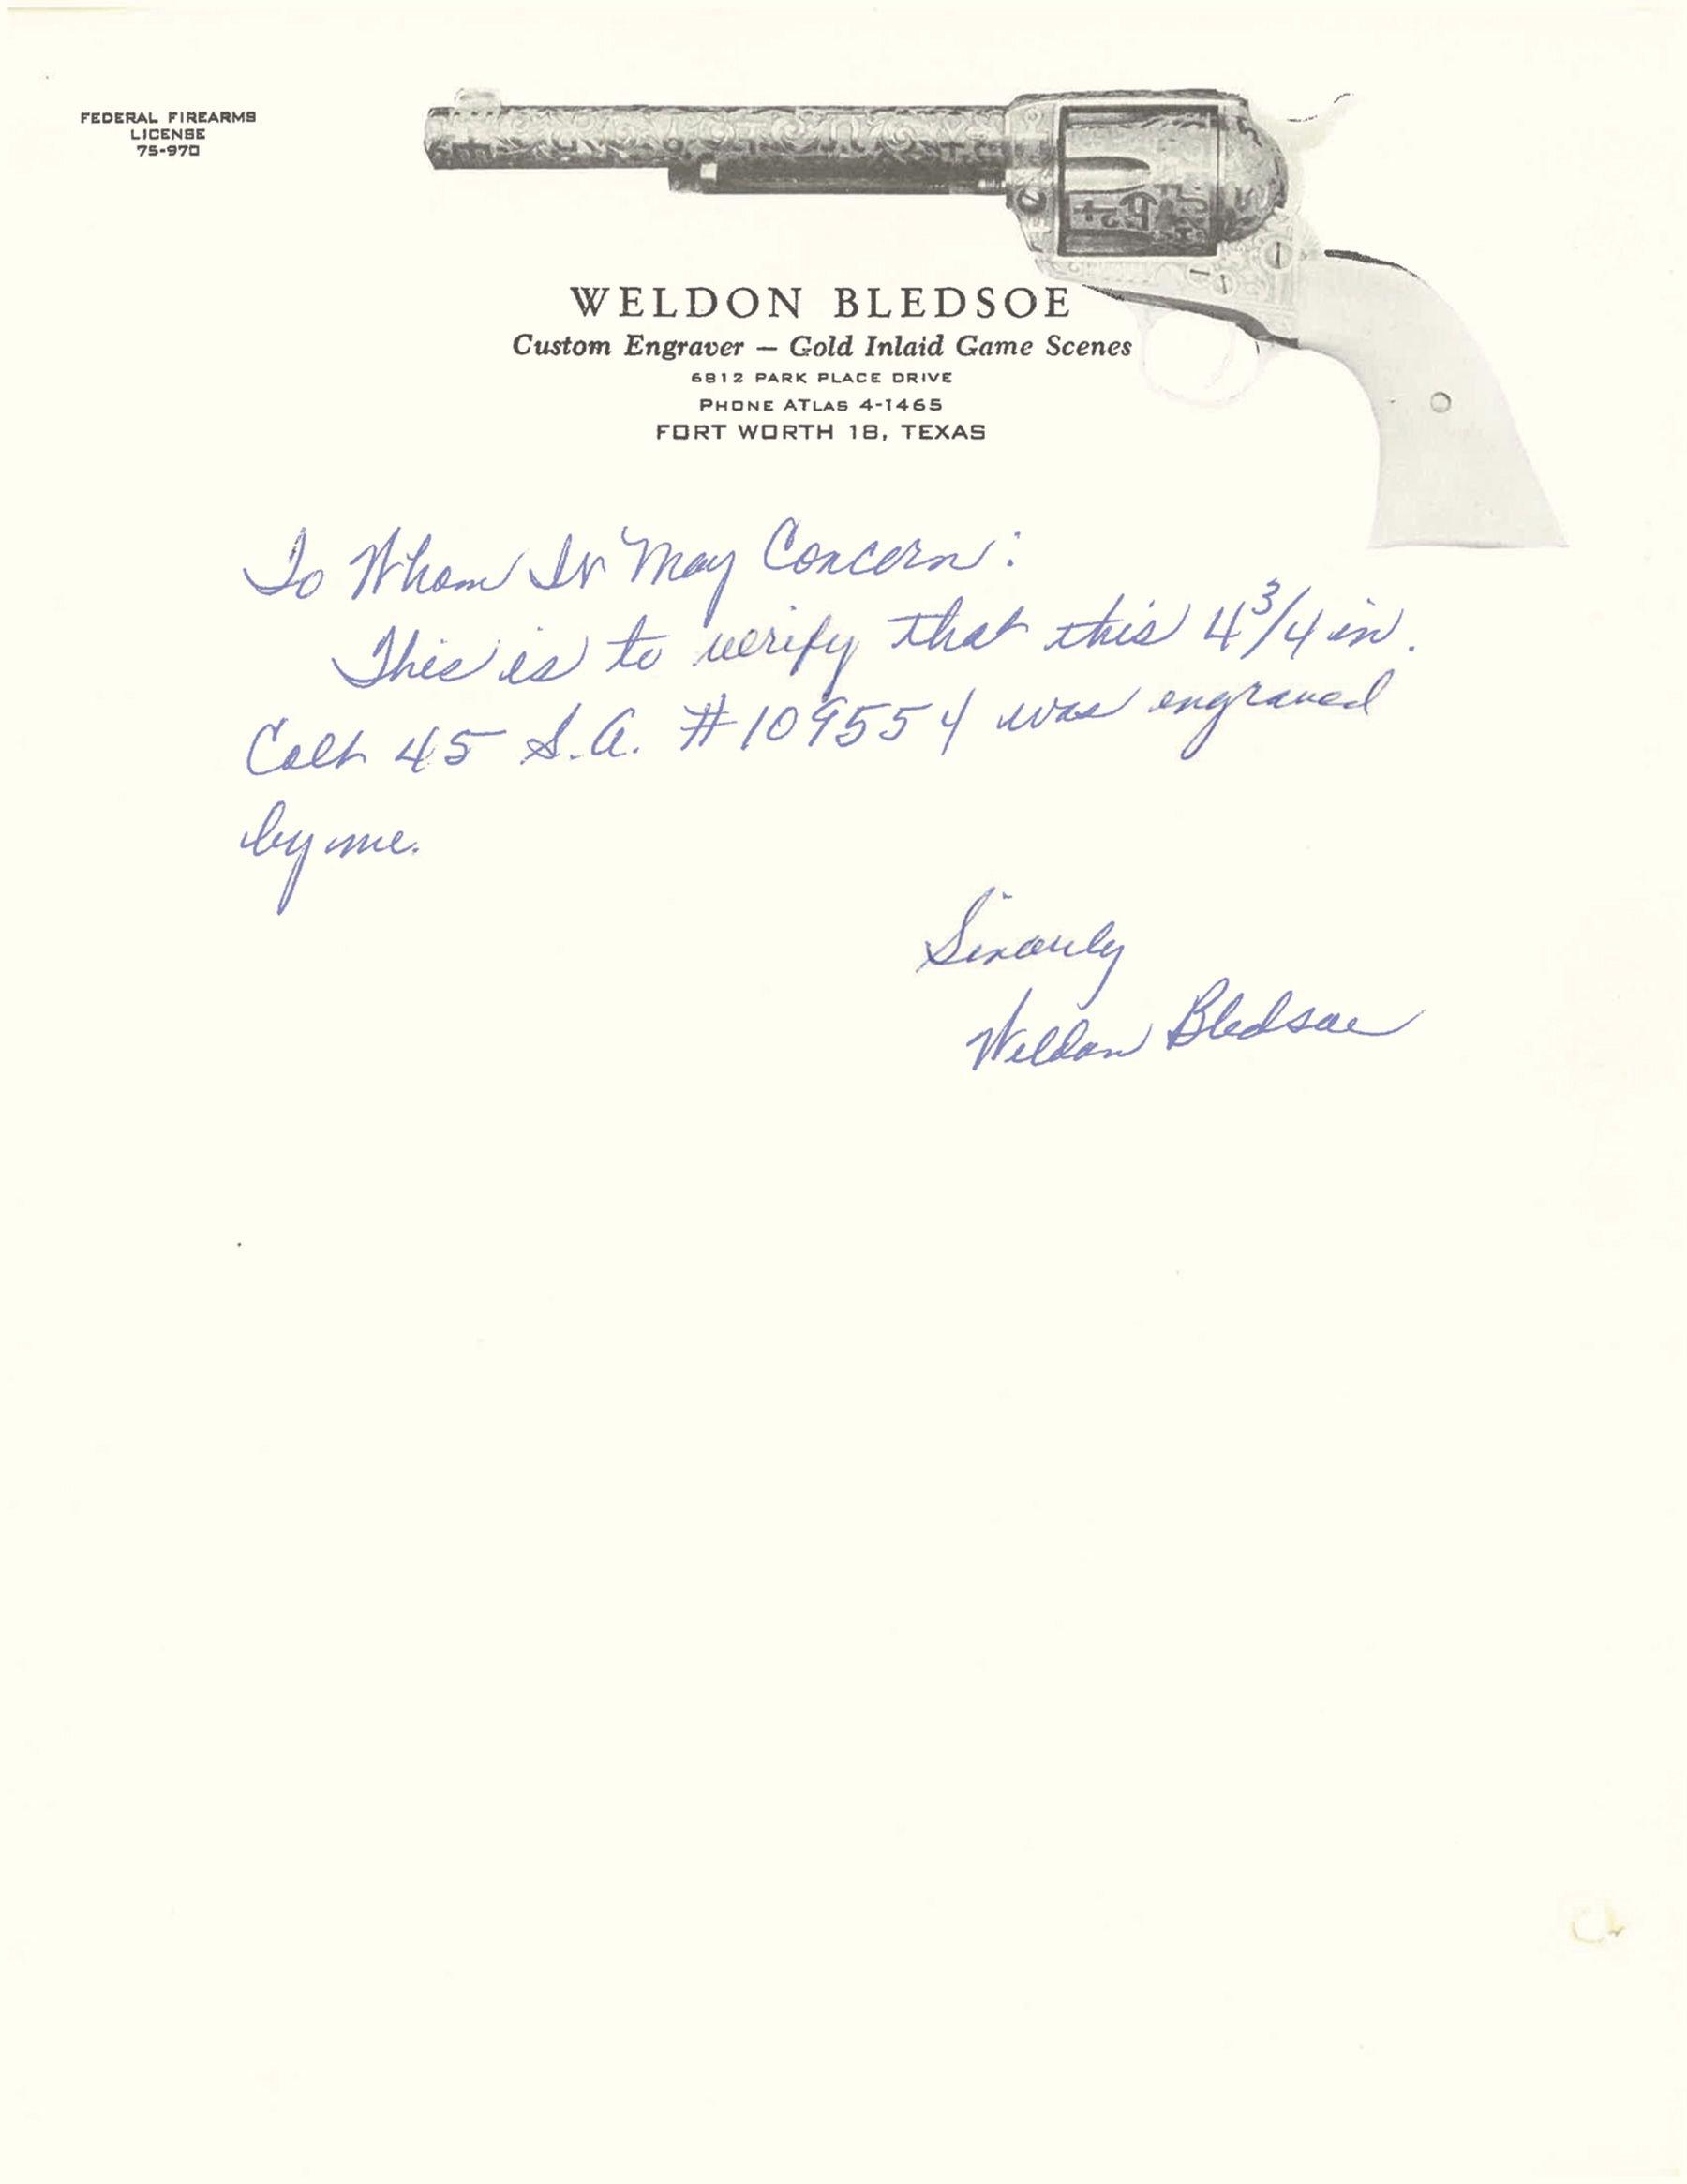 FEDERAL FIREARMS
LICENSE
75-970
WELDON BLEDSOE
Custom Engraver — Gold Inlaid Game Scenes
6812 PARK PLACE DRIVE
PHONE ATLAS 4-1465
FORT WORTH 18, TEXAS
To Whom It May Concern:
This is to verify that this 4 3/4 in.
Colt 45 S.A. #109554 was engraved
by me.
Sincerely
Weldon Bledsoe